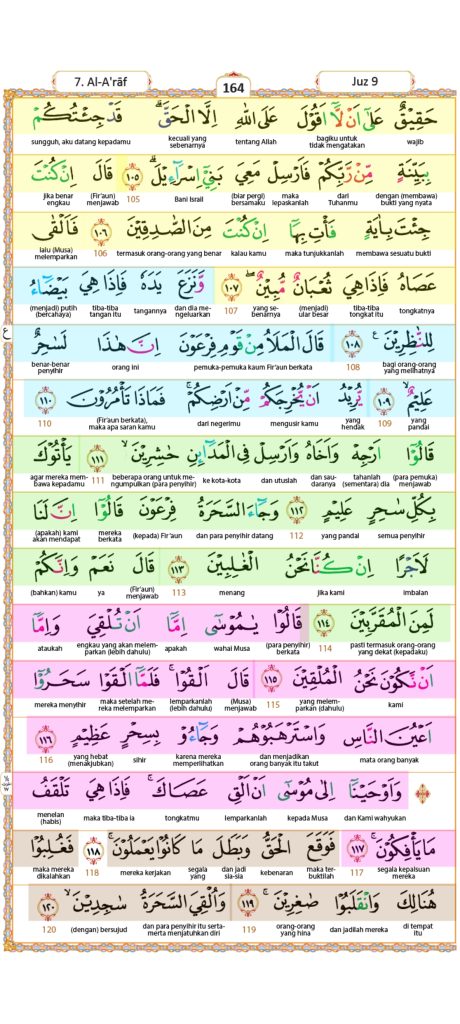 7. Al-A'rāf
164
Juz 9
حَقِيْقٌ عَلٰٓى اَنْ لَّآ اَقُوْلَ عَلَى اللّٰهِ اِلَّا الْحَقَّۗ قَدْ جِئْتُكُمْ
wajib bagiku untuk tidak mengatakan tentang Allah kecuali yang sebenarnya sungguh, aku datang kepadamu
بِبَيِّنَةٍ مِّنْ رَّبِّكُمْ فَاَرْسِلْ مَعِيَ بَنِيْٓ اِسْرَاۤءِيْلَۗ ۝١٠٥ قَالَ اِنْ كُنْتَ
dengan (membawa) bukti yang nyata dari Tuhanmu maka lepaskanlah (biar pergi) bersamaku Bani Israil 105 (Fir'aun) menjawab jika benar engkau
جِئْتَ بِاٰيَةٍ فَأْتِ بِهَآ اِنْ كُنْتَ مِنَ الصّٰدِقِيْنَ ۝١٠٦ فَاَلْقٰى
membawa sesuatu bukti maka tunjukkanlah kalau kamu termasuk orang-orang yang benar 106 lalu (Musa) melemparkan
عَصَاهُ فَاِذَا هِيَ ثُعْبَانٌ مُّبِيْنٌ ۝١٠٧ وَّنَزَعَ يَدَهٗ فَاِذَا هِيَ بَيْضَاۤءُ
tongkatnya tiba-tiba tongkat itu (menjadi) ular besar yang se-benarnya 107 dan dia me-ngeluarkan tangannya tiba-tiba tangan itu (menjadi) putih (bercahaya)
لِلنّٰظِرِيْنَ ۝١٠٨ قَالَ الْمَلَاُ مِنْ قَوْمِ فِرْعَوْنَ اِنَّ هٰذَا لَسٰحِرٌ
bagi orang-orang yang melihatnya 108 pemuka-pemuka kaum Fir'aun berkata orang ini benar-benar penyihir
ع
عَلِيْمٌۙ ۝١٠٩ يُّرِيْدُ اَنْ يُّخْرِجَكُمْ مِّنْ اَرْضِكُمْۚ فَمَاذَا تَأْمُرُوْنَ ۝١١٠
yang pandai 109 yang hendak mengusir kamu dari negerimu (Fir'aun berkata), maka apa saran kamu 110
قَالُوْٓا اَرْجِهْ وَاَخَاهُ وَاَرْسِلْ فِى الْمَدَاۤىِٕنِ حٰشِرِيْنَۙ ۝١١١ يَأْتُوْكَ
(para pemuka) menjawab tahanlah (sementara) dia dan sau-daranya dan utuslah ke kota-kota beberapa orang untuk me-ngumpulkan (para penyihir) 111 agar mereka mem-bawa kepadamu
بِكُلِّ سٰحِرٍ عَلِيْمٍ ۝١١٢ وَجَاۤءَ السَّحَرَةُ فِرْعَوْنَ قَالُوْٓا اِنَّ لَنَا
semua penyihir yang pandai 112 dan para penyihir datang (kepada) Fir'aun mereka berkata (apakah) kami akan mendapat
لَاَجْرًا اِنْ كُنَّا نَحْنُ الْغٰلِبِيْنَ ۝١١٣ قَالَ نَعَمْ وَاِنَّكُمْ
imbalan jika kami menang 113 (Fir'aun) menjawab ya (bahkan) kamu
لَمِنَ الْمُقَرَّبِيْنَ ۝١١٤ قَالُوْا يٰمُوْسٰٓى اِمَّآ اَنْ تُلْقِيَ وَاِمَّآ
pasti termasuk orang-orang yang dekat (kepadaku) 114 (para penyihir) berkata wahai Musa apakah engkau yang akan melem-parkan (lebih dahulu) ataukah
اَنْ نَّكُوْنَ نَحْنُ الْمُلْقِيْنَ ۝١١٥ قَالَ اَلْقُوْاۚ فَلَمَّآ اَلْقَوْا سَحَرُوْٓا
kami yang melem-parkan (dahulu) 115 (Musa) menjawab lemparkanlah (lebih dahulu) maka setelah me-reka melemparkan mereka menyihir
اَعْيُنَ النَّاسِ وَاسْتَرْهَبُوْهُمْ وَجَاۤءُوْ بِسِحْرٍ عَظِيْمٍ ۝١١٦
mata orang banyak dan menjadikan orang banyak itu takut karena mereka memperlihatkan sihir yang hebat (menakjubkan) 116
وَاَوْحَيْنَآ اِلٰى مُوْسٰٓى اَنْ اَلْقِ عَصَاكَۚ فَاِذَا هِيَ تَلْقَفُ
dan Kami wahyukan kepada Musa lemparkanlah tongkatmu maka tiba-tiba ia menelan (habis)
مَا يَأْفِكُوْنَۚ ۝١١٧ فَوَقَعَ الْحَقُّ وَبَطَلَ مَا كَانُوْا يَعْمَلُوْنَۚ ۝١١٨ فَغُلِبُوْا
segala kepalsuan mereka 117 maka ter-buktilah kebenaran dan jadi sia-sia segala yang mereka kerjakan 118 maka mereka dikalahkan
هُنَالِكَ وَانْقَلَبُوْا صٰغِرِيْنَۚ ۝١١٩ وَاُلْقِيَ السَّحَرَةُ سٰجِدِيْنَۙ ۝١٢٠
di tempat itu dan jadilah mereka orang-orang yang hina 119 dan para penyihir itu serta-merta menjatuhkan diri (dengan) bersujud 120